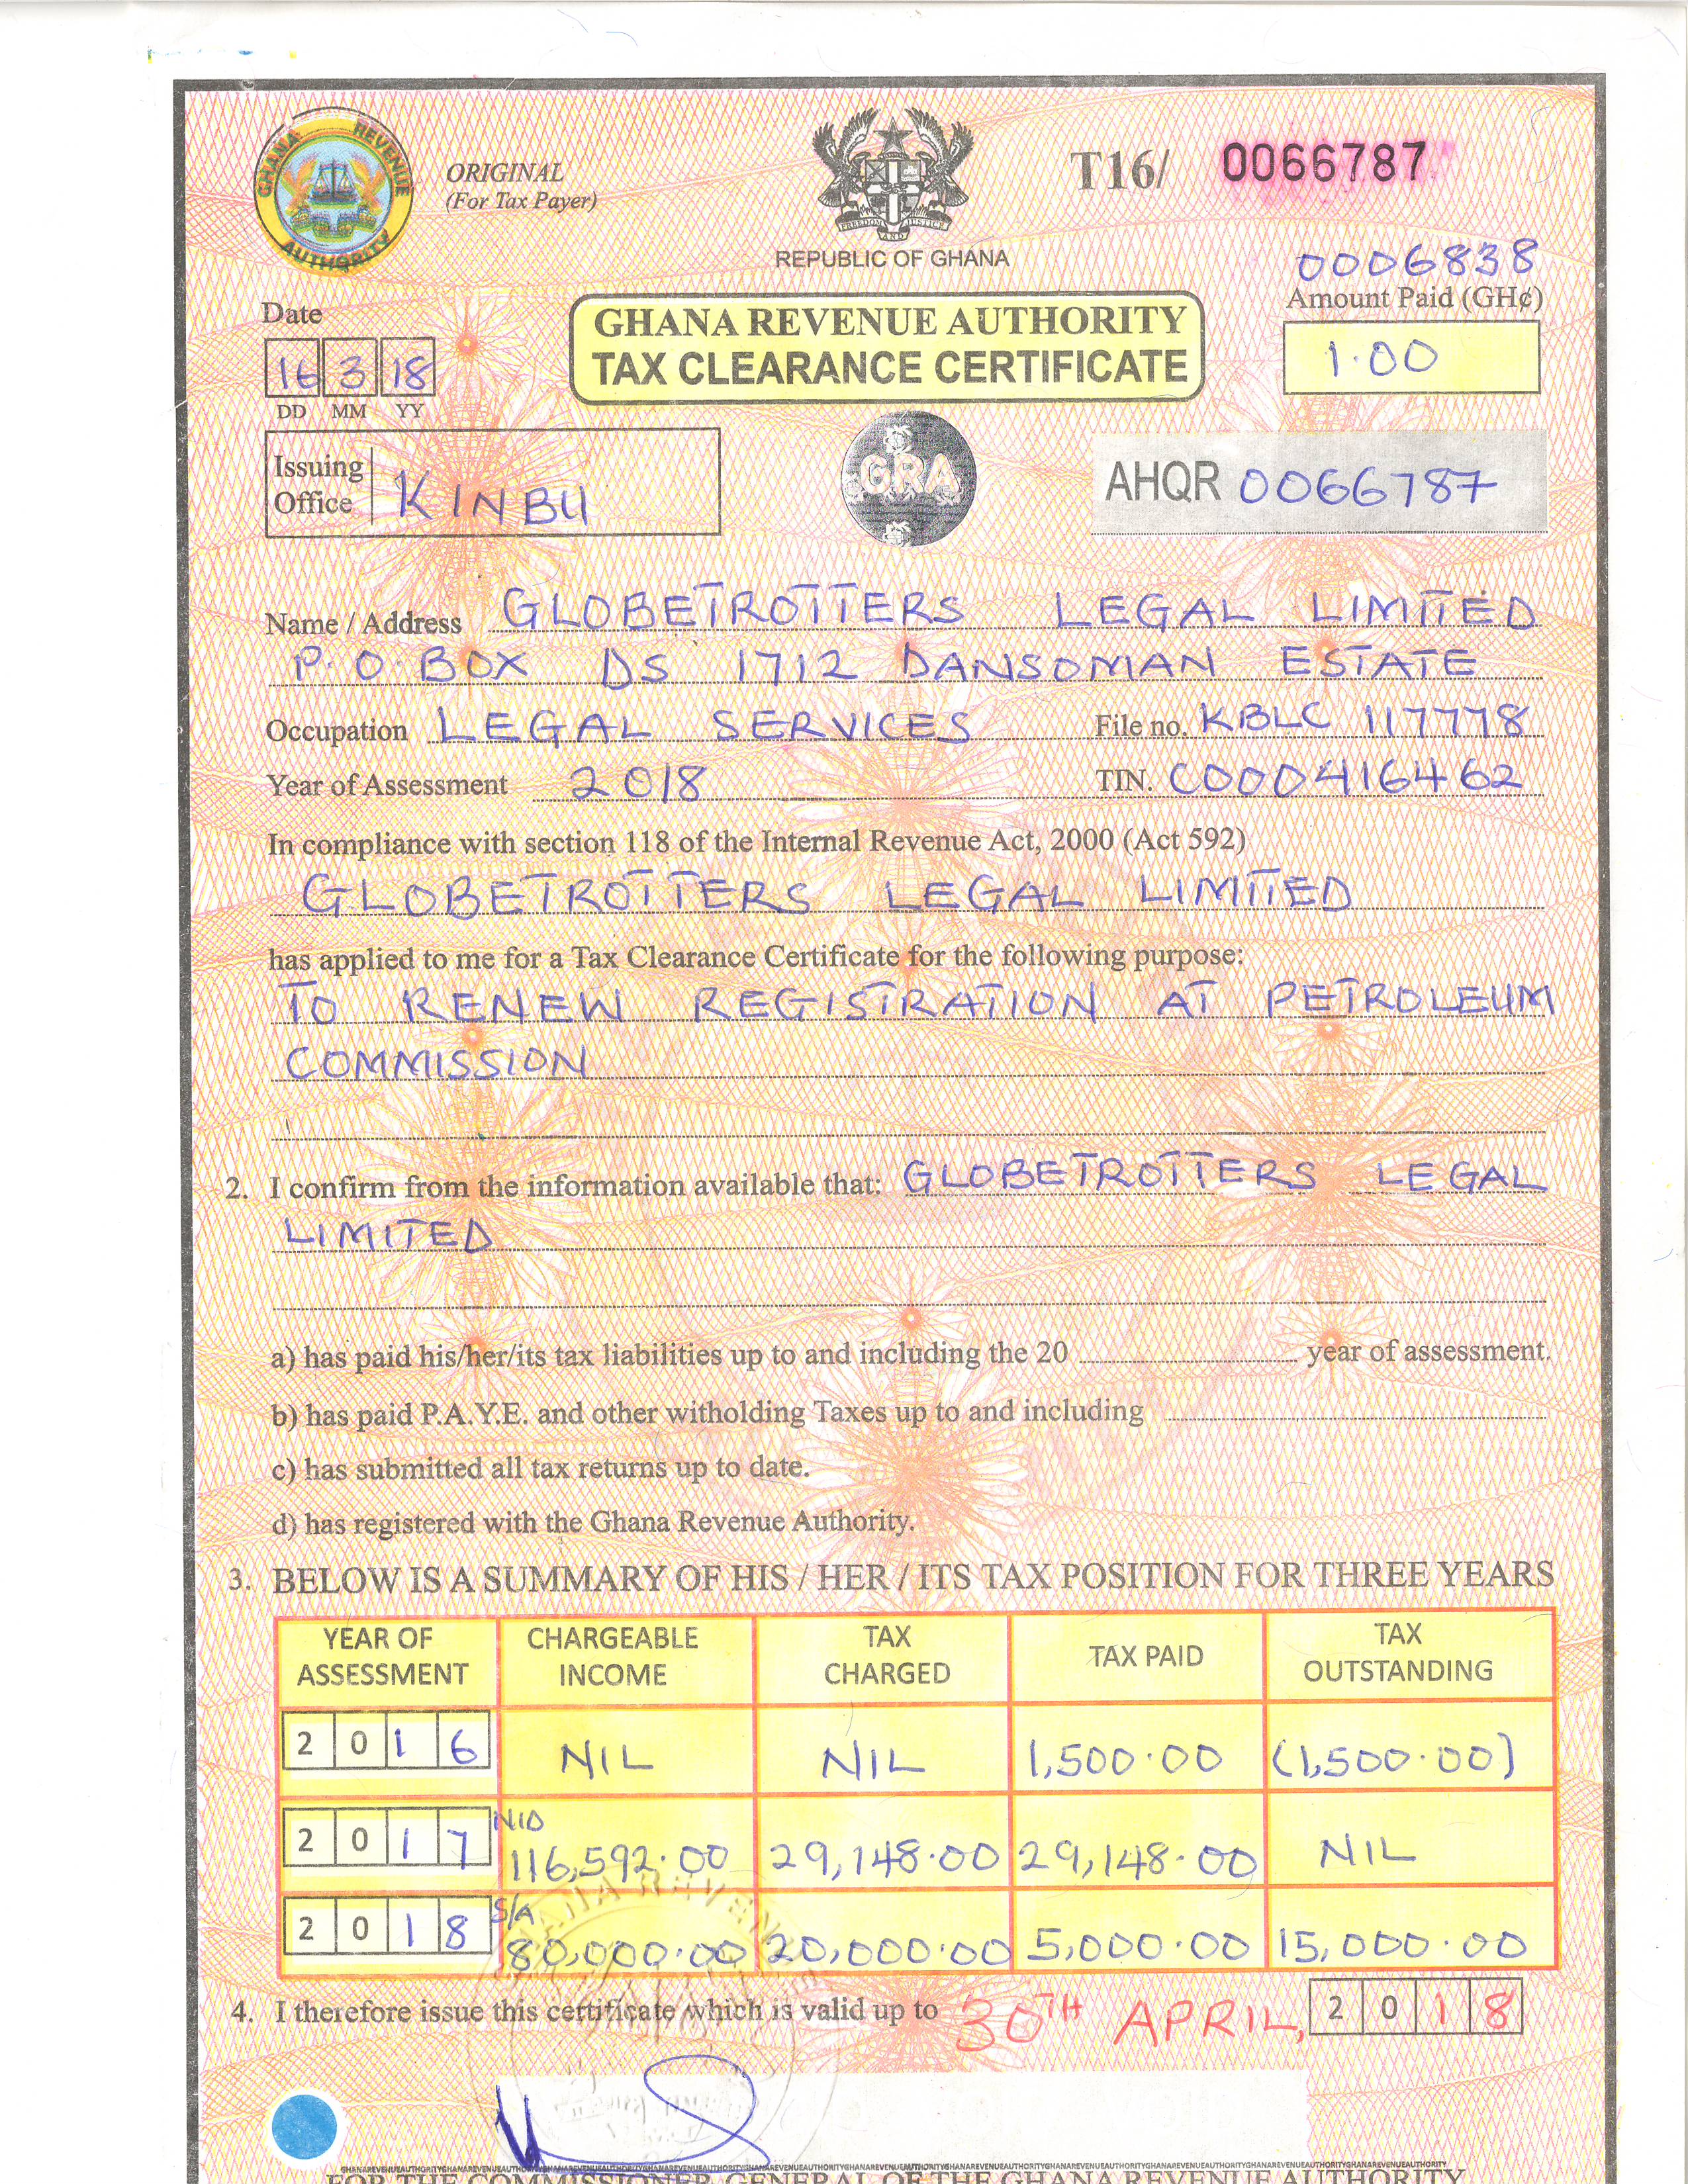 GHANA REVENUE AUTHORITY
ORIGINAL
(For Tax Payer)
FREEDOM AND JUSTICE
REPUBLIC OF GHANA
T16/ 0066787
0006838
Amount Paid (GH¢)
1.00
Date
16 3 18
DD MM YY
GHANA REVENUE AUTHORITY
TAX CLEARANCE CERTIFICATE
Issuing Office KINBU
GRA
AHQR 0066787
Name / Address GLOBETROTTERS LEGAL LIMITED
P.O. BOX DS 1712 DANSOMAN ESTATE
Occupation LEGAL SERVICES File no. KBLC 117778
Year of Assessment 2018 TIN. C0004416462
In compliance with section 118 of the Internal Revenue Act, 2000 (Act 592)
GLOBETROTTERS LEGAL LIMITED
has applied to me for a Tax Clearance Certificate for the following purpose:
TO RENEW REGISTRATION AT PETROLEUM
COMMISSION
2. I confirm from the information available that: GLOBETROTTERS LEGAL
LIMITED
a) has paid his/her/its tax liabilities up to and including the 20 year of assessment.
b) has paid P.A.Y.E. and other witholding Taxes up to and including
c) has submitted all tax returns up to date.
d) has registered with the Ghana Revenue Authority.
3. BELOW IS A SUMMARY OF HIS / HER / ITS TAX POSITION FOR THREE YEARS
YEAR OF ASSESSMENT CHARGEABLE INCOME TAX CHARGED TAX PAID TAX OUTSTANDING
2016 NIL NIL 1,500.00 (1,500.00)
2017 116,592.00 29,148.00 29,148.00 NIL
2018 S/A 80,000.00 20,000.00 5,000.00 15,000.00
4. I therefore issue this certificate which is valid up to 30TH APRIL, 2018
FOR THE COMMISSIONER GENERAL OF THE GHANA REVENUE AUTHORITY